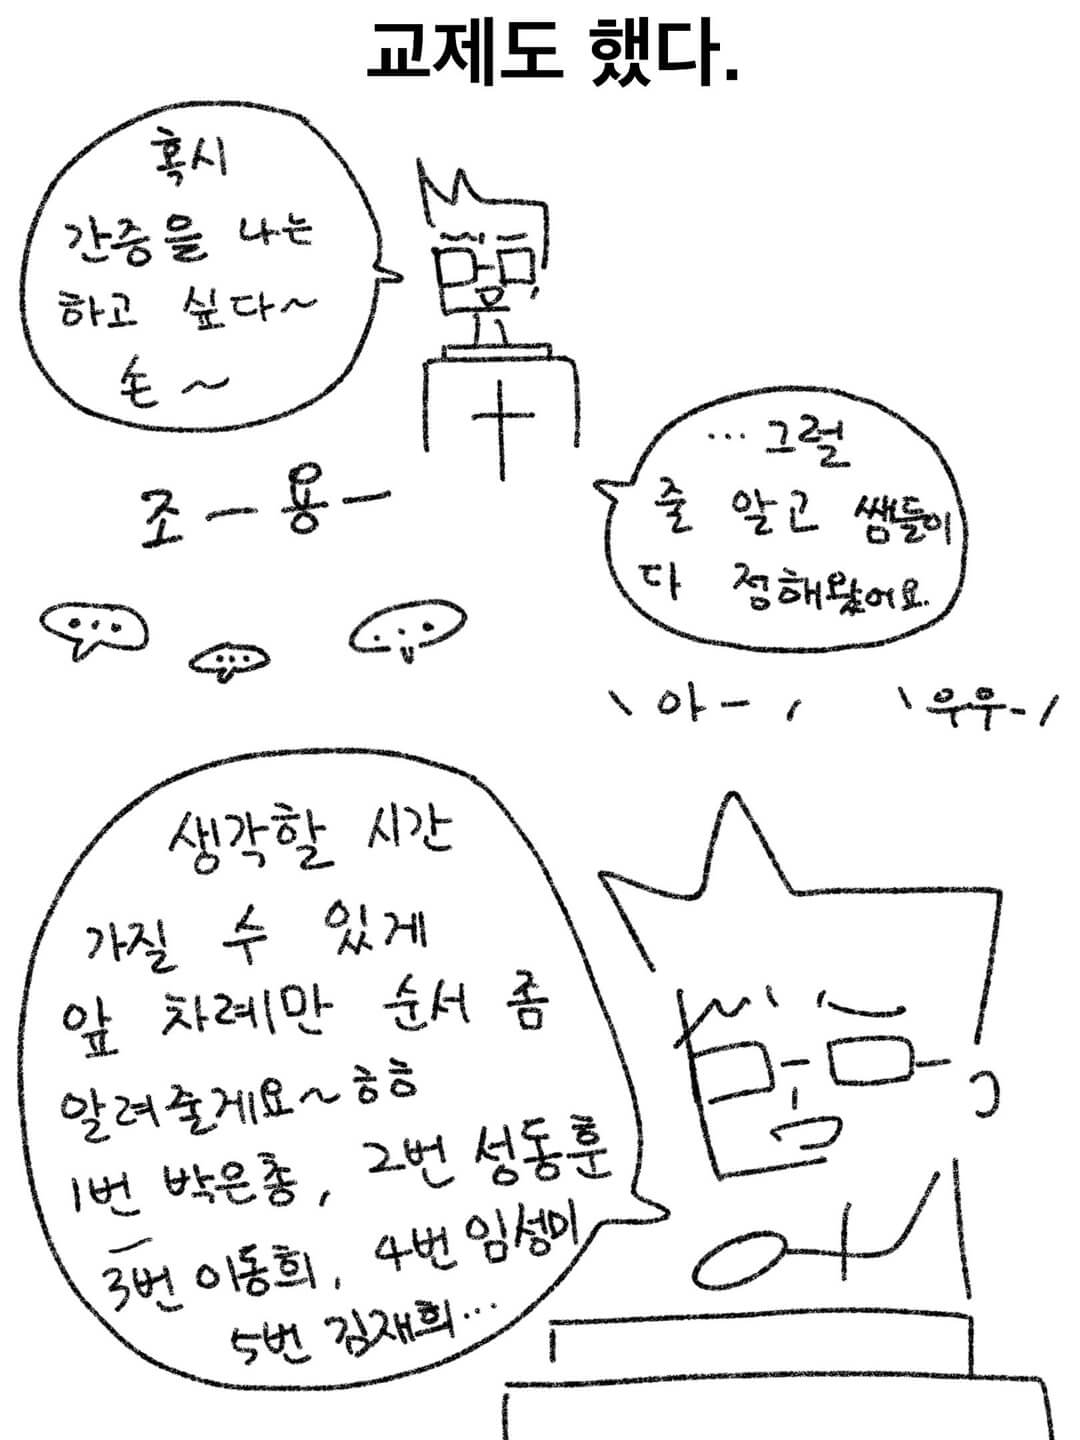 교제도 했다.
혹시
간증을 나는
하고 싶다~
손~
조-용-
...그럴
줄 알고 쌤들이
다 정해왔어요.
아-
우우-
생각할 시간
가질 수 있게
앞 차례만 순서 좀
알려줄게요~ㅎㅎ
1번 박은총, 2번 성동훈
3번 이동희, 4번 임성미
5번 김재희...